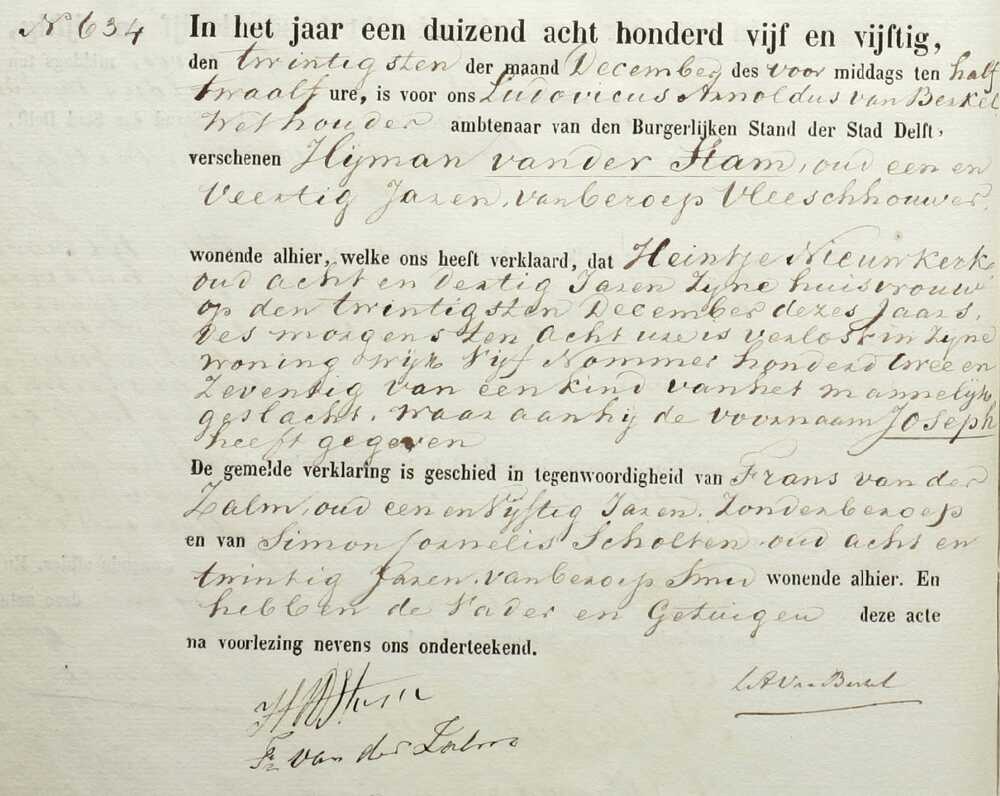 No 634 In het jaar een duizend acht honderd vijf en vijftig,
den twintigsten der maand December des voor middags ten half
twaalf ure, is voor ons Ludovicus Arnoldus van Berkel
Wethouder ambtenaar van den Burgerlijken Stand der Stad Delft,
verschenen Hijman van der Stam, oud een en
Veertig Jaren, van beroep Vleeschhouwer,
wonende alhier, welke ons heeft verklaard, dat Heintje Nieuwkerk
oud acht en dertig Jaren Zijne huisvrouw
op den twintigsten December dezes Jaars,
des morgens ten acht ure is verlost in Zijne
woning Wijk Vijf Nommer honderd twee en
Zeventig van een kind van het mannelijk
geslacht, waar aan hij de voornaam Joseph
heeft gegeven
De gemelde verklaring is geschied in tegenwoordigheid van Frans van der
Zalm, oud een en Vijftig Jaren, Zonder beroep
en van Simon Cornelis Scholten oud acht en
twintig Jaren, van beroep Smid wonende alhier. En
hebben de Vader en Getuigen deze acte
na voorlezing nevens ons onderteekend.
LA Van Berkel
Fr van der Zalm